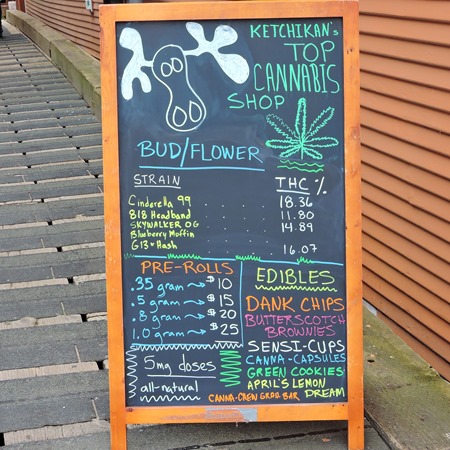 KETCHIKAN's
TOP
CANNABIS
SHOP
BUD/FLOWER
STRAIN THC %
Cinderella 99 18.36
818 Headband 11.80
SKYWALKER OG 14.89
Blueberry Moffin
G13 Hash 16.07
PRE-ROLLS
.35 gram → $10
.5 gram → $15
.8 gram → $20
1.0 gram → $25
5mg doses
all-natural
EDIBLES
DANK CHIPS
BUTTERSCOTCH
BROWNIES
SENSI-CUPS
CANNA-CAPSULES
GREEN COOKIES
APRIL'S LEMON
DREAM
CANNA-CREW GRAB BAR